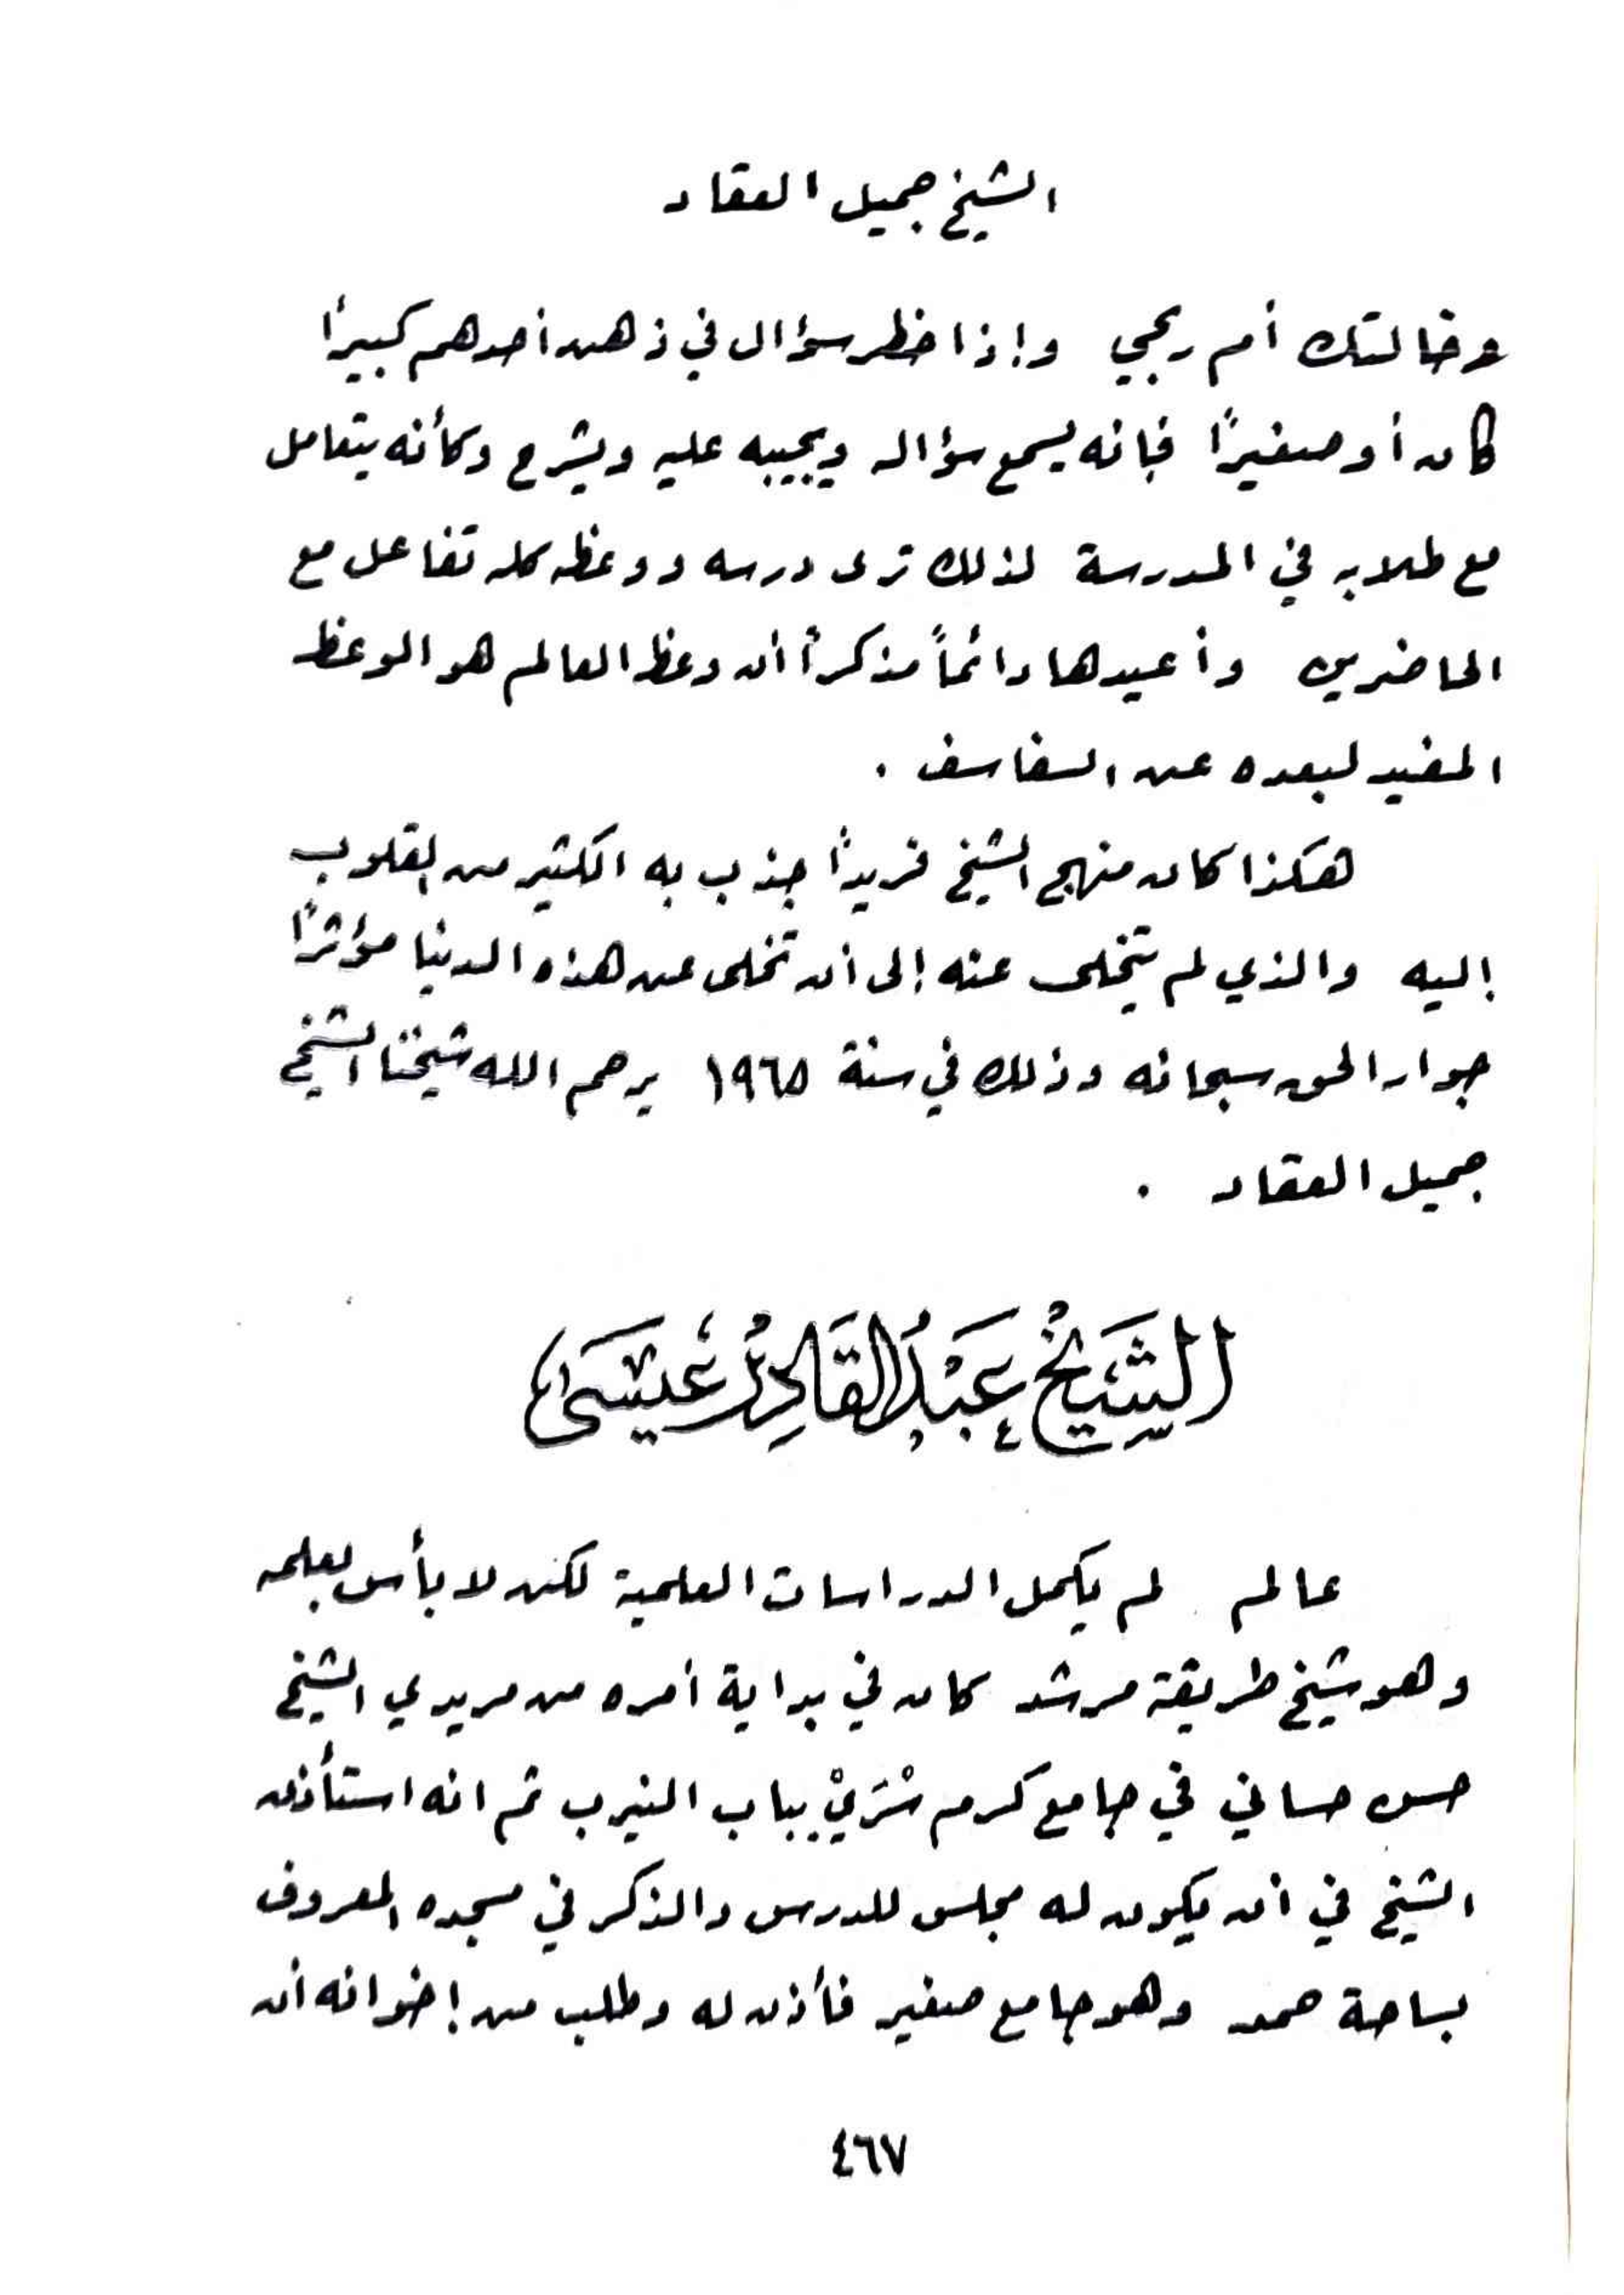 الشيخ جميل العقاد
وخالتك أم رجي وإذا خطر سؤال في ذهن أحدهم كبيراً
كان أو صغيراً فإنه يسمع سؤاله ويجيبه عليه ويشرح وكأنه يتعامل
مع طلابه في المدرسة لذلك ترى درسه ووعظه كله تفاعل مع
الحاضرين وأعيدها دائماً مذكراً أن وعظ العالم هو الوعظ
المفيد لبعده عن السفاسف .
هكذا كان منهج الشيخ فريداً جذب به الكثير من القلوب
إليه والذي لم يتخلى عنه إلى أن تخلى عن هذه الدينا مؤثراً
جوار الحق سبحانه وذلك في سنة ١٩٦٥ يرحم الله شيخنا الشيخ
جميل العقاد .
الشَيْخُ عَبْدُ القَادِرْ عِيسَى
عالم لم يكمل الدراسات العلمية لكن لا بأس بعلمه
وهو شيخ طريقة مرشد كان في بداية أمره من مريدي الشيخ
حسن حساني في جامع كرم سْرَيْ بباب النيرب ثم انه استأذن
الشيخ في أن يكون له مجلس للدرس والذكر في مسجده المعروف
بساحة حمد وهو جامع صغير فأذن له وطلب من إخوانه أن
٤٦٧